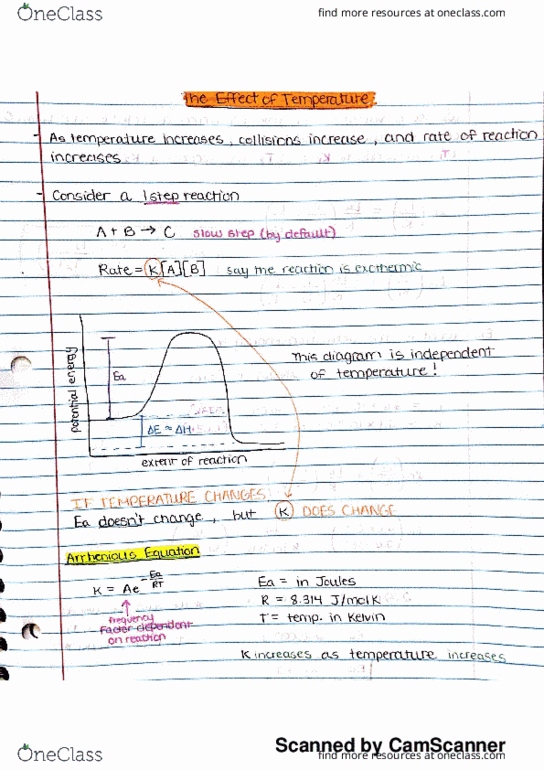 OneClass
find more resources at oneclass.com
The Effect of Temperature
- As temperature increases, collisions increase, and rate of reaction
increases
- Consider a 1step reaction
A + B → C slow step (by default)
Rate = K[A][B] say the reaction is exothermic
potential energy
Ea
ΔE ≈ ΔH
extent of reaction
This diagram is independent
of temperature!
IF TEMPERATURE CHANGES,
Ea doesn't change, but K DOES CHANGE
Arrhenious Equation
K = Ae^-Ea/RT
frequency
Factor dependent
on reaction
Ea = in Joules
R = 8.314 J/molK
T = temp. in Kelvin
K increases as temperature increases
Scanned by CamScanner
OneClass
find more resources at oneclass.com